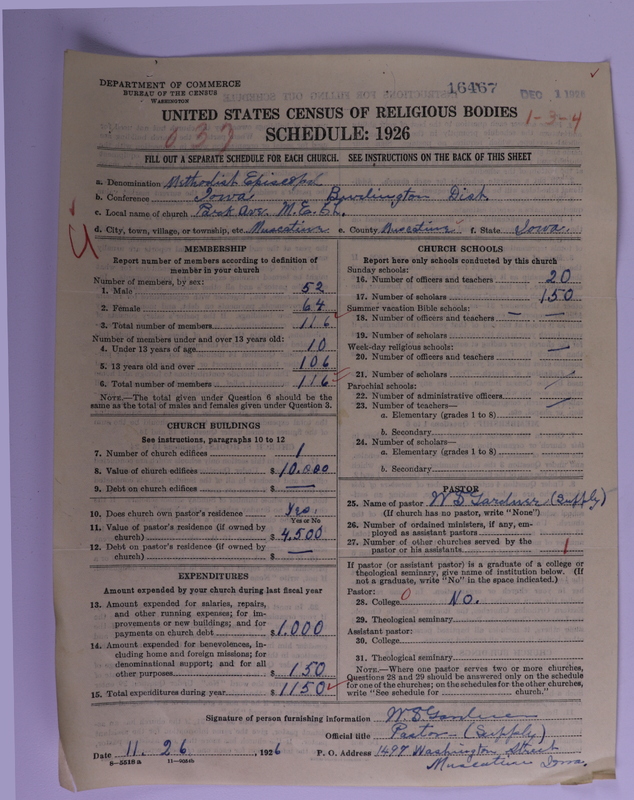 DEPARTMENT OF COMMERCE
BUREAU OF THE CENSUS
WASHINGTON
16467
DEC 1 1926
UNITED STATES CENSUS OF RELIGIOUS BODIES
1-3-4
SCHEDULE: 1926
633
FILL OUT A SEPARATE SCHEDULE FOR EACH CHURCH. SEE INSTRUCTIONS ON THE BACK OF THIS SHEET
a. Denomination Methodist Episcopal
b. Conference Iowa Burlington Dist.
c. Local name of church Park Ave. M.E. Ch.
d. City, town, village, or township, etc. Muscatine e. County Muscatine f. State Iowa.
MEMBERSHIP
Report number of members according to definition of member in your church
Number of members, by sex:
1. Male 52
2. Female 64
3. Total number of members 116
Number of members under and over 13 years old:
4. Under 13 years of age 10
5. 13 years old and over 106
6. Total number of members 116
NOTE.—The total given under Question 6 should be the same as the total of males and females given under Question 3.
CHURCH BUILDINGS
See instructions, paragraphs 10 to 12
7. Number of church edifices 1
8. Value of church edifices $10.000
9. Debt on church edifices $ —
10. Does church own pastor's residence? Yes.
Yes or No
11. Value of pastor's residence (if owned by church) $4.500
12. Debt on pastor's residence (if owned by church) $ —
EXPENDITURES
Amount expended by your church during last fiscal year
13. Amount expended for salaries, repairs, and other running expenses; for improvements or new buildings; and for payments on church debt $1.000
14. Amount expended for benevolences, including home and foreign missions; for denominational support; and for all other purposes $150
15. Total expenditures during year $1150
CHURCH SCHOOLS
Report here only schools conducted by this church
Sunday schools:
16. Number of officers and teachers 20
17. Number of scholars 150
Summer vacation Bible schools:
18. Number of officers and teachers — —
19. Number of scholars
Week-day religious schools: —
20. Number of officers and teachers
21. Number of scholars
Parochial schools:
22. Number of administrative officers
23. Number of teachers— —
a. Elementary (grades 1 to 8)
b. Secondary
24. Number of scholars—
a. Elementary (grades 1 to 8)
b. Secondary
PASTOR
25. Name of pastor W D Gardner (Supply)
(If church has no pastor, write "None")
26. Number of ordained ministers, if any, employed as assistant pastors
27. Number of other churches served by the pastor or his assistants 1
If pastor (or assistant pastor) is a graduate of a college or theological seminary, give name of institution below. (If not a graduate, write "No" in the space indicated.)
Pastor:
28. College 0 No.
29. Theological seminary
Assistant pastor:
30. College
31. Theological seminary
NOTE.—Where one pastor serves two or more churches, Questions 28 and 29 should be answered only on the schedule for one of the churches; on the schedules for the other churches, write "See schedule for church."
Signature of person furnishing information W D Gardner
Official title Pastor (Supply)
Date 11. 26, 1926 P. O. Address 1497 Washington Street
Muscatine Iowa.
8—5518 a